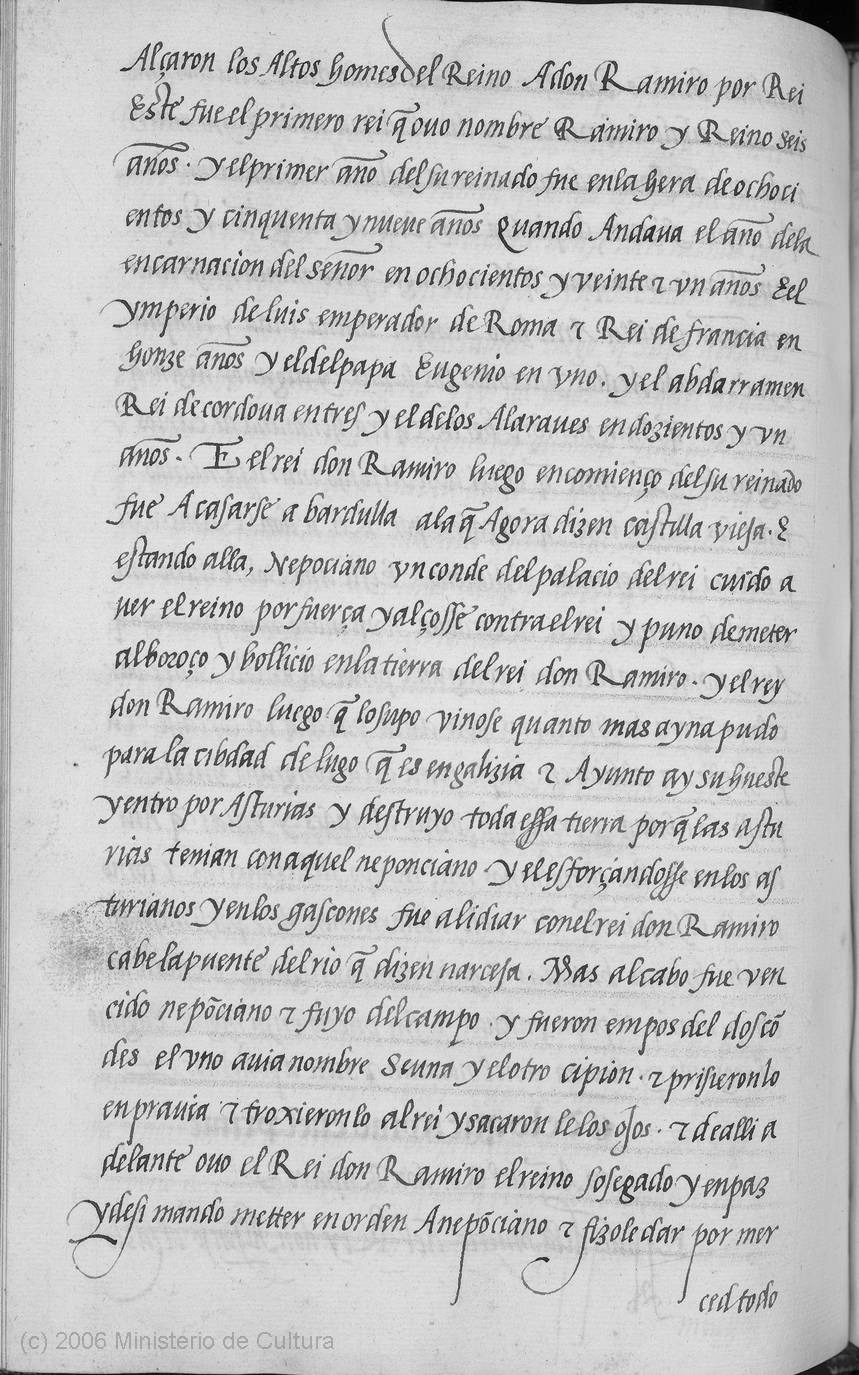 Alçaron los Altos homes del Reino Adon Ramiro por Rei
Este fue el primero rei q̃ ouo nombre Ramiro y Reino seis
años. y el primer año del su reinado fue en la hera de ochoci
entos y cinquenta y nueue años Quando Andaua el año dela
encarnacion del señor en ochocientos y veinte ⁊ vn años Eel
ymperio de luis emperador de Roma ⁊ Rei de francia en
honze años y el del papa Eugenio en vno. y el abdarramen
Rei de cordoua en tres y el delos Alaraues en dozientos y vn
años. E el rei don Ramiro luego en comienço del su reinado
fue A casarse a bardulla ala q̃ Agora dizen castilla vieja. E
estando alla, Nepociano vn conde del palacio del rei cuido a
uer el reino por fuerça y alçosse contra el rei y puno de meter
alboroço y bollicio en la tierra del rei don Ramiro. y el rey
don Ramiro luego q̃ lo supo vinose quanto mas ayna pudo
para la cibdad de lugo q̃ es en galizia ⁊ Ayunto ay su hueste
y entro por Asturias y destruyo toda essa tierra por q̃ las astu
rias tenian con aquel neponciano y el esforçandosse en los as
turianos y en los gascones fue a lidiar con el rei don Ramiro
cabe la puente del rio q̃ dizen narceja. Mas al cabo fue ven
cido nepõciano ⁊ fuyo del campo. y fueron empos del dos cõ
des el vno auia nombre Seuna y el otro cipion. ⁊ prisieronlo
en pravia ⁊ troxieronlo al rei y sacaron le los ojos. ⁊ de alli a
delante ouo el Rei don Ramiro el reino sosegado y en paz
y desi mando metter en orden A nepõciano ⁊ fizole dar por mer
ced todo
(c) 2006 Ministerio de Cultura